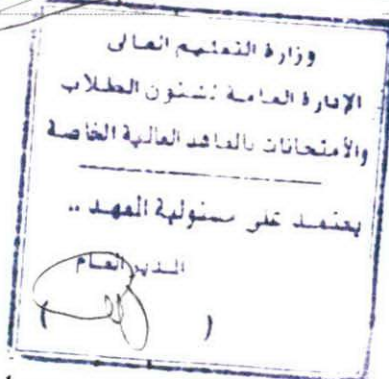 وزارة التعليم العالى
الإدارة العامة لشئون الطلاب
والأمتحانات بالمعاهد العالية الخاصة
يعتمد على مسئولية المعهد ..
المدير العام
( )